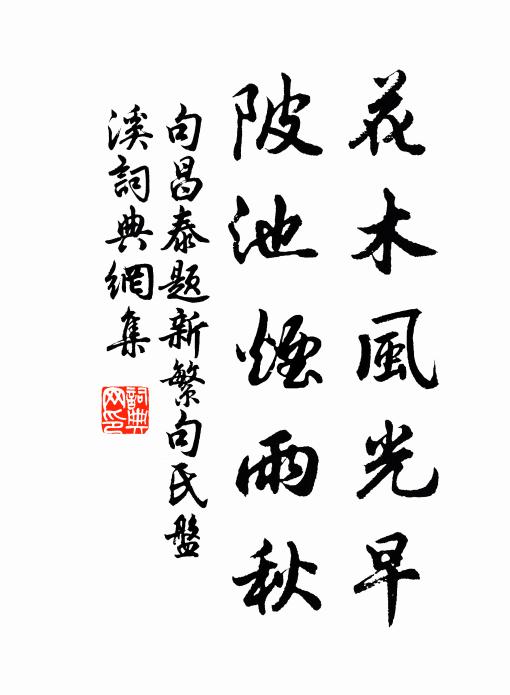 花木風光早
陂池煙雨秋
句昌泰題新繁句氏盤
溪詞典網集
詞典
网印